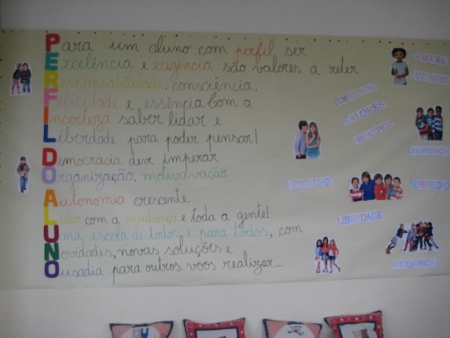 Para um aluno com perfil, ser
Excelência e exigência são valores a reter
Responsabilidade, consciência,
Felicidade e essência com a
Incerteza saber lidar e
Liberdade para poder pensar!
Democracia deve imperar
Organização, motivação
Autonomia crescente
Lidar com a mudança e toda a gente!
Uma escola de todos, e para todos, com
Novidades, novas soluções e
Ousadia para outros voos realizar...
VALORES
LIBERDADE